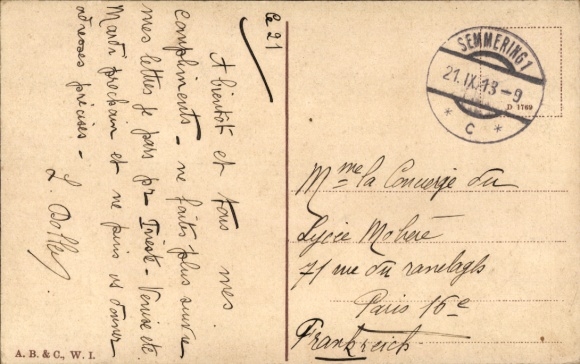 Ce 21
A bientôt et tous mes
compliments - ne faites plus suivre
mes lettes je pars pr Trieste - Venise etc
Mardi prochain et ne puis vs donner
adresses précises -
L. Dolley
SEMMERING 1
21.IX.13-9
D 1769
* C *
Mme la Concierge du
Lycée Molière
71 rue du ranelagh
Paris 16e
Frankreich
A. B. & C., W. I.